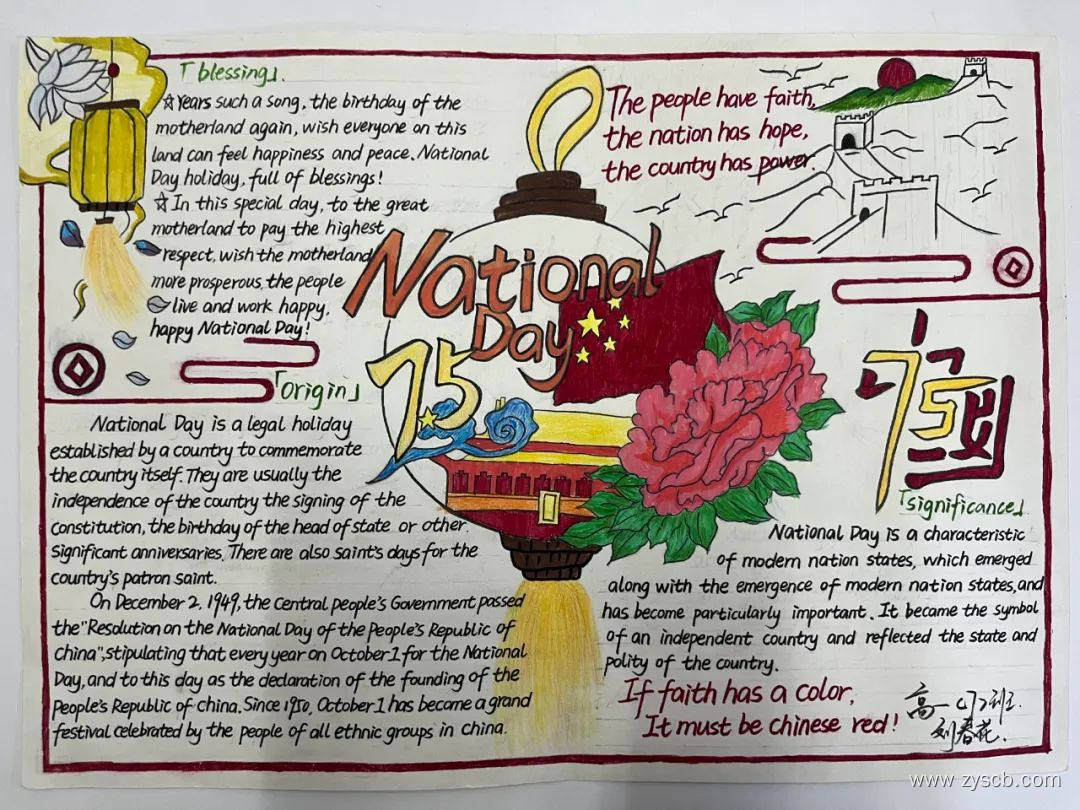 「blessing」.
☆Years such a song, the birthday of the
motherland again, wish everyone on this
land can feel happiness and peace. National
Day holiday, full of blessings!
☆In this special day, to the great
motherland to pay the highest
respect, wish the motherland
more prosperous, the people
live and work happy,
happy National Day!
The people have faith,
the nation has hope,
the country has power.
National
Day
75
「Origin」
National Day is a legal holiday
established by a country to commemorate
the country itself. They are usually the
independence of the country the signing of the
constitution, the birthday of the head of state or other
significant anniversaries. There are also saint's days for the
country's patron saint.
On December 2, 1949, the Central people's Government passed
the "Resolution on the National Day of the People's Republic of
China", stipulating that every year on October 1 for the National
Day, and to this day as the declaration of the founding of the
People's Republic of China. Since 1950, October 1 has become a grand
festival celebrated by the people of all ethnic groups in China.
75
「significance」
National Day is a characteristic
of modern nation states, which emerged
along with the emergence of modern nation states, and
has become particularly important. It became the symbol
of an independent country and reflected the state and
polity of the country.
If faith has a color,
It must be chinese red!
高一(7)班.
刘春花.
www.zyscb.com